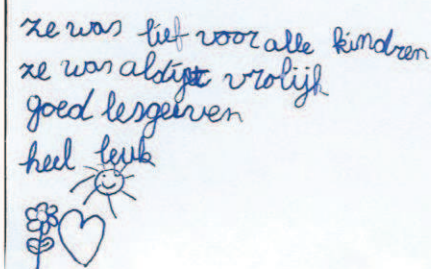 ze was lief voor alle kindren
ze was aldijt vrolijk
goed lesgeven
heel leuk